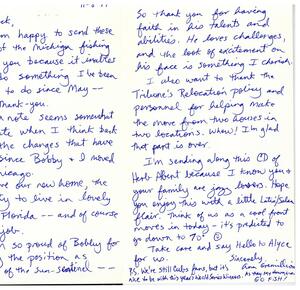 11-6-97
ck,
m happy to send these
of the Michigan fishing
you because it invites
do something I've been
to do since May --
Thank-you.
note seems somewhat
ate when I think back
the changes that have
since Bobby & I moved
icago.
are our new home, the
ty to live in lovely
Florida -- and of course
job.
m so proud of Bobby for
g the position as
of the Sun-Sentinel --
So thank you for having
faith in his talents and
abilities. He loves challenges,
and the look of excitement on
his face is something I cherish.
I also want to thank the
Tribune's Relocation policy and
personnel for helping make
the move from two houses in
two locations. Whew! I'm glad
that part is over.
I'm sending along this CD of
Herb Alpert because I know you &
your family are jazz lovers. Hope
you enjoy this with a little Latin/Cuban
flair. Think of us as a cool front
moves in today - it's predicted to
go down to 70°
Take care and say Hello to Alyce
for us.
Sincerely,
P.S. We're still Cubs fans, but it's
nice to be with this year's World Series Winners.
GO FISH!